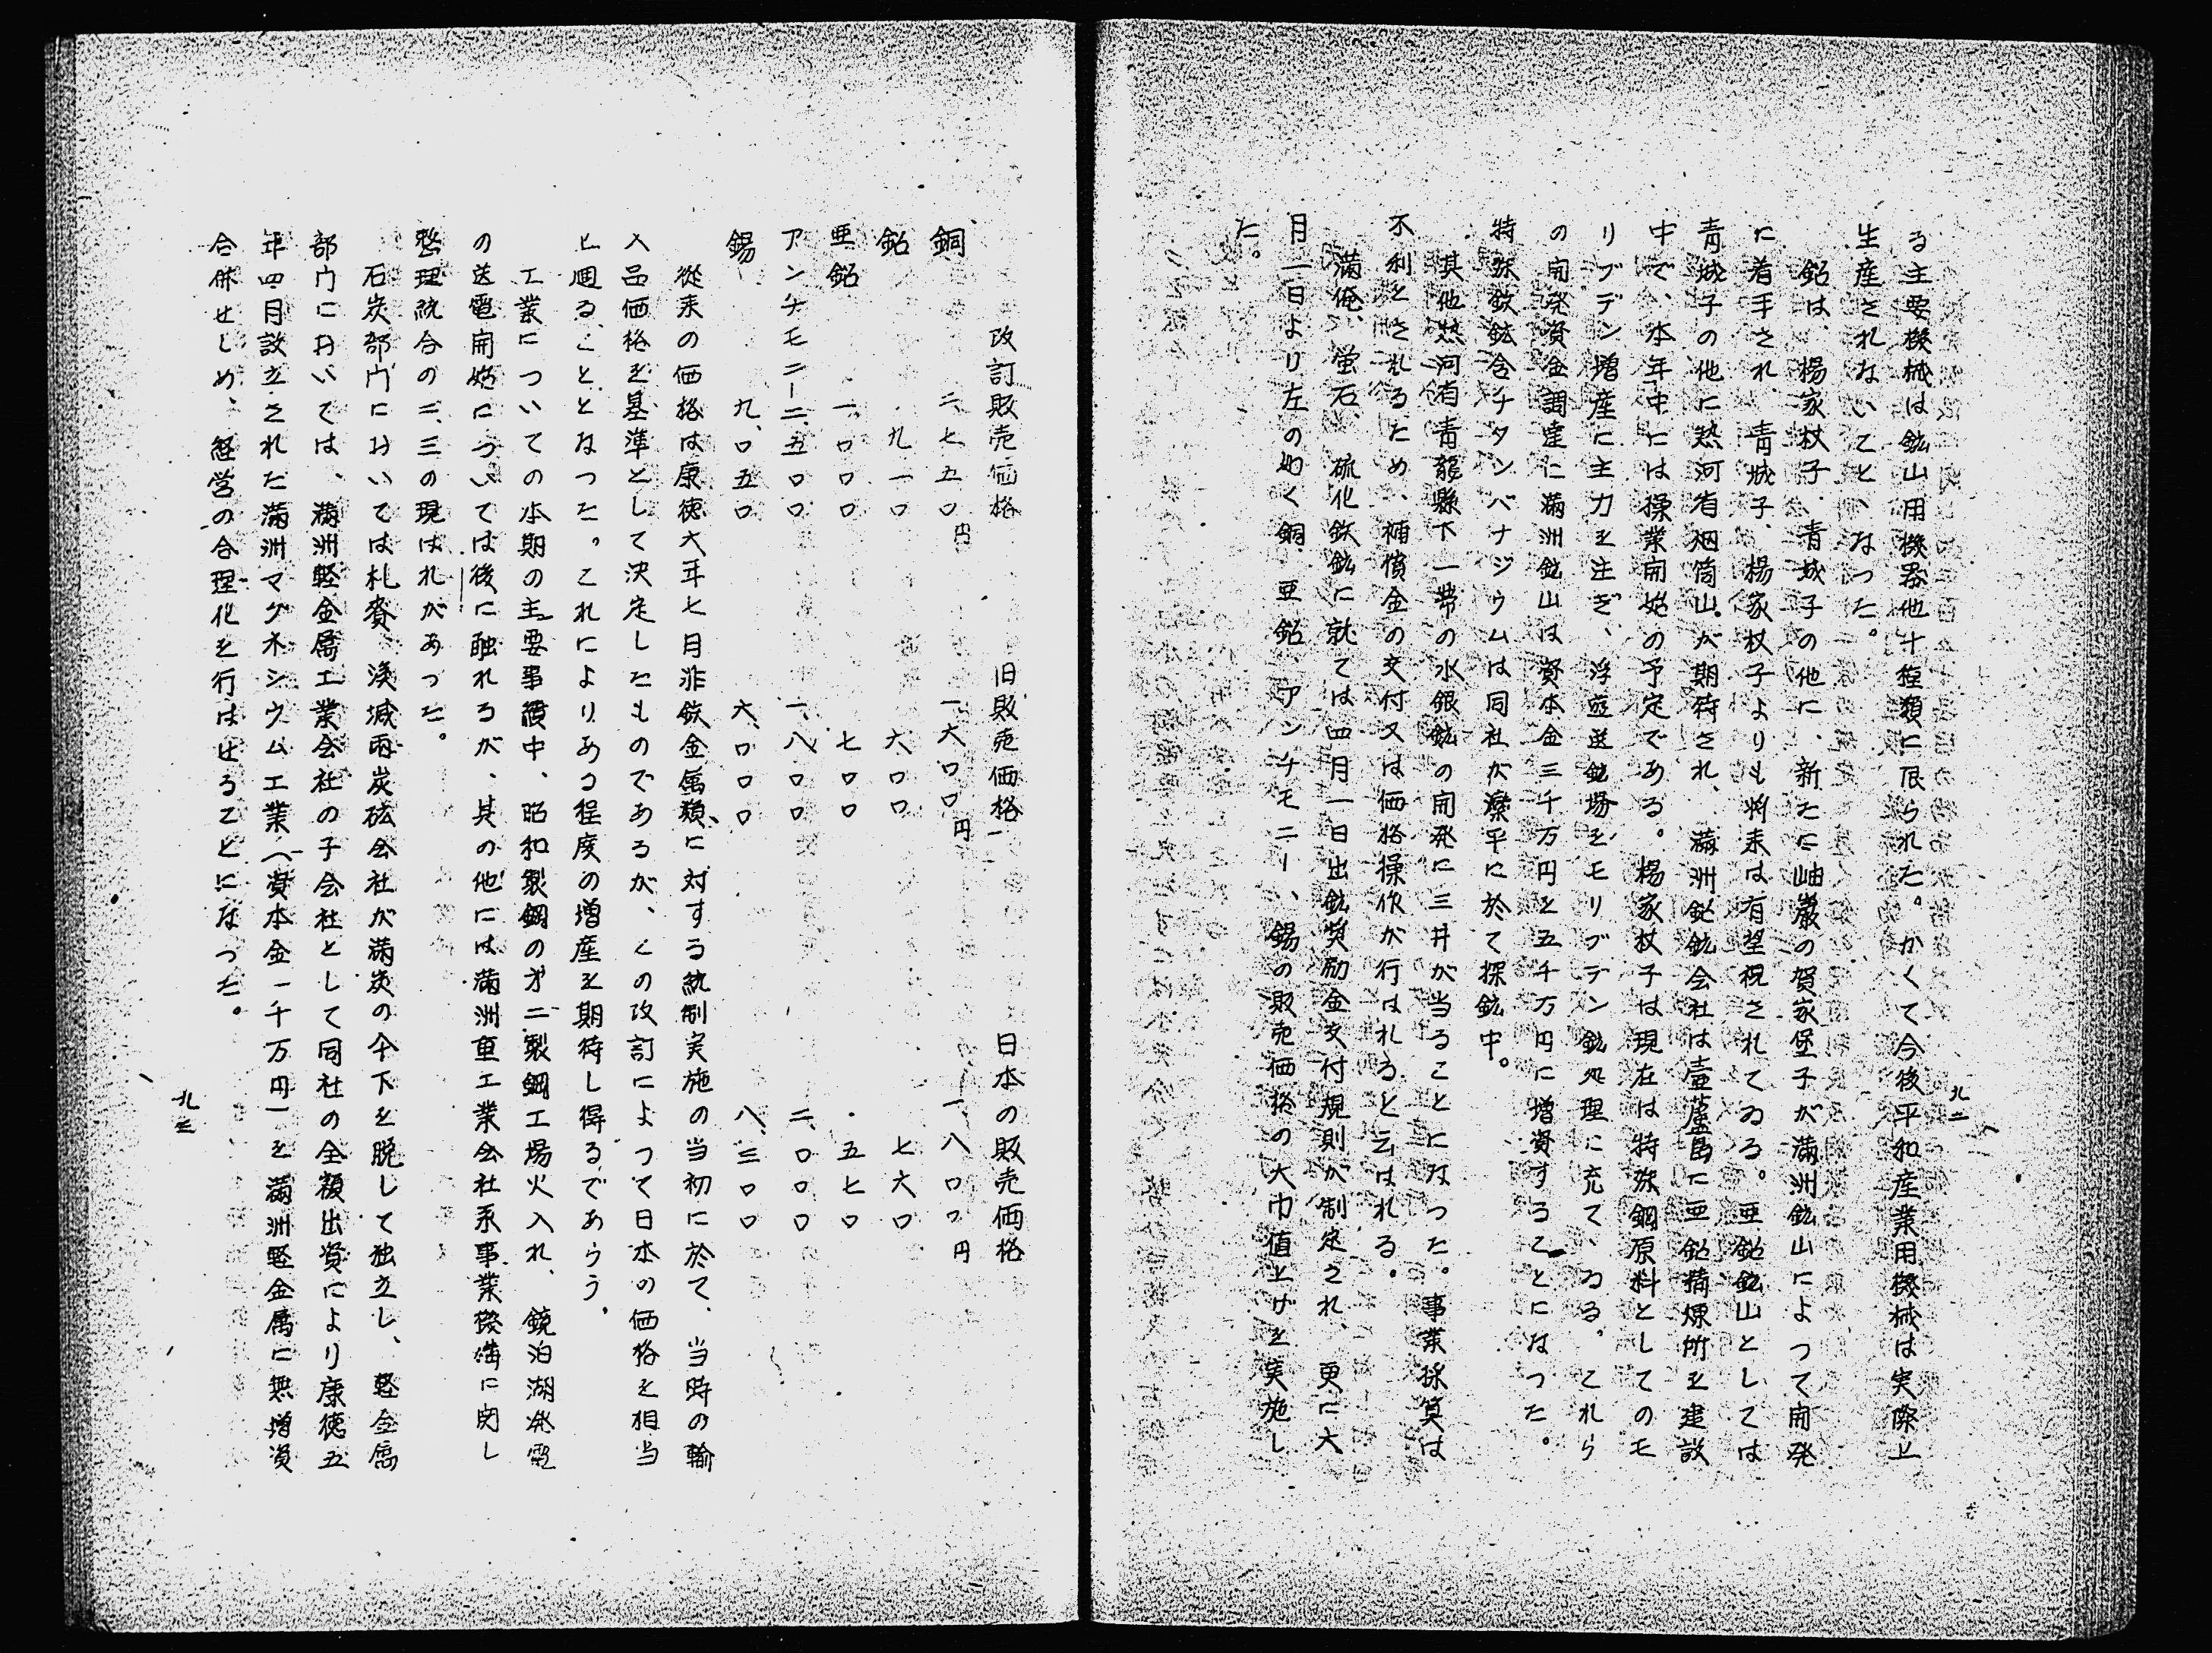 九二
る主要機械は鉱山用機器他十種類に限られた。かくて今後平和産業用機械は実際上
生産されないこと、なつた。
鉛は、楊家杖子、青城子の他に、新たに岫巖の賀家堡子が満洲鉱山によつて開発
に着手され、青城子、楊家杖子よりも将来は有望視されてゐる。亜鉛鉱山としては
青城子の他に熱河省烟筒山が期待され、満洲鉛鉱会社は壷蘆島に亜鉛精煉所を建設
中で、本年中には操業開始の予定である。楊家杖子は現在は特殊鋼原料としてのモ
リブデン増産に主力を注ぎ、浮遊選鉱場をモリブデン鉱処理に充て、ゐる。これら
の開発資金調達に満洲鉱山は資本金三千万円を五千万円に増資することになつた。
特殊鉄鉱含チタンバナジウムは同社が灤平に於て探鉱中。
其他熱河省青龍縣下一帯の水銀鉱の開発に三井が当ることになつた。事業採算は
不利とされるため、補償金の交付又は価格操作が行はれると云はれる。
満俺、蛍石、硫化鉄鉱に就ては四月一日出鉱奨励金交付規則が制定され、更に六
月一日より左の如く銅、亜鉛、アンチモニー、錫の販売価格の大巾値上げを実施し
た。
改訂販売価格 旧販売価格 日本の販売価格
銅 二、七五〇円 一、六〇〇円 一、八〇〇円
鉛 九一〇 六〇〇 七六〇
亜鉛 一、〇〇〇 七〇〇 五七〇
アンチモニー 二、五〇〇 一、八〇〇 二、〇〇〇
錫 九、〇五〇 六、〇〇〇 八、三〇〇
従来の価格は康徳六年七月非鉄金属類に対する統制実施の当初に於て、当時の輸
入品価格を基準として決定したものであるが、この改訂によつて日本の価格を相当
上廻ることとなつた。これによりある程度の増産を期待し得るであらう。
工業についての本期の主要事績中、昭和製鋼の才二製鋼工場火入れ、鏡泊湖発電
の送電開始については後に触れるが、其の他には満洲重工業会社系事業機構に関し
整理統合の二、三の現はれがあつた。
石炭部門においては札賚、渓堿両炭砿会社が満炭の傘下を脱して独立し、軽金属
部門においては、満洲軽金属工業会社の子会社として同社の全額出資により康徳五
年四月設立された満洲マグネシウム工業(資本金一千万円)を満洲軽金属に無増資
合併せしめ、経営の合理化を行はせることになつた。
九三